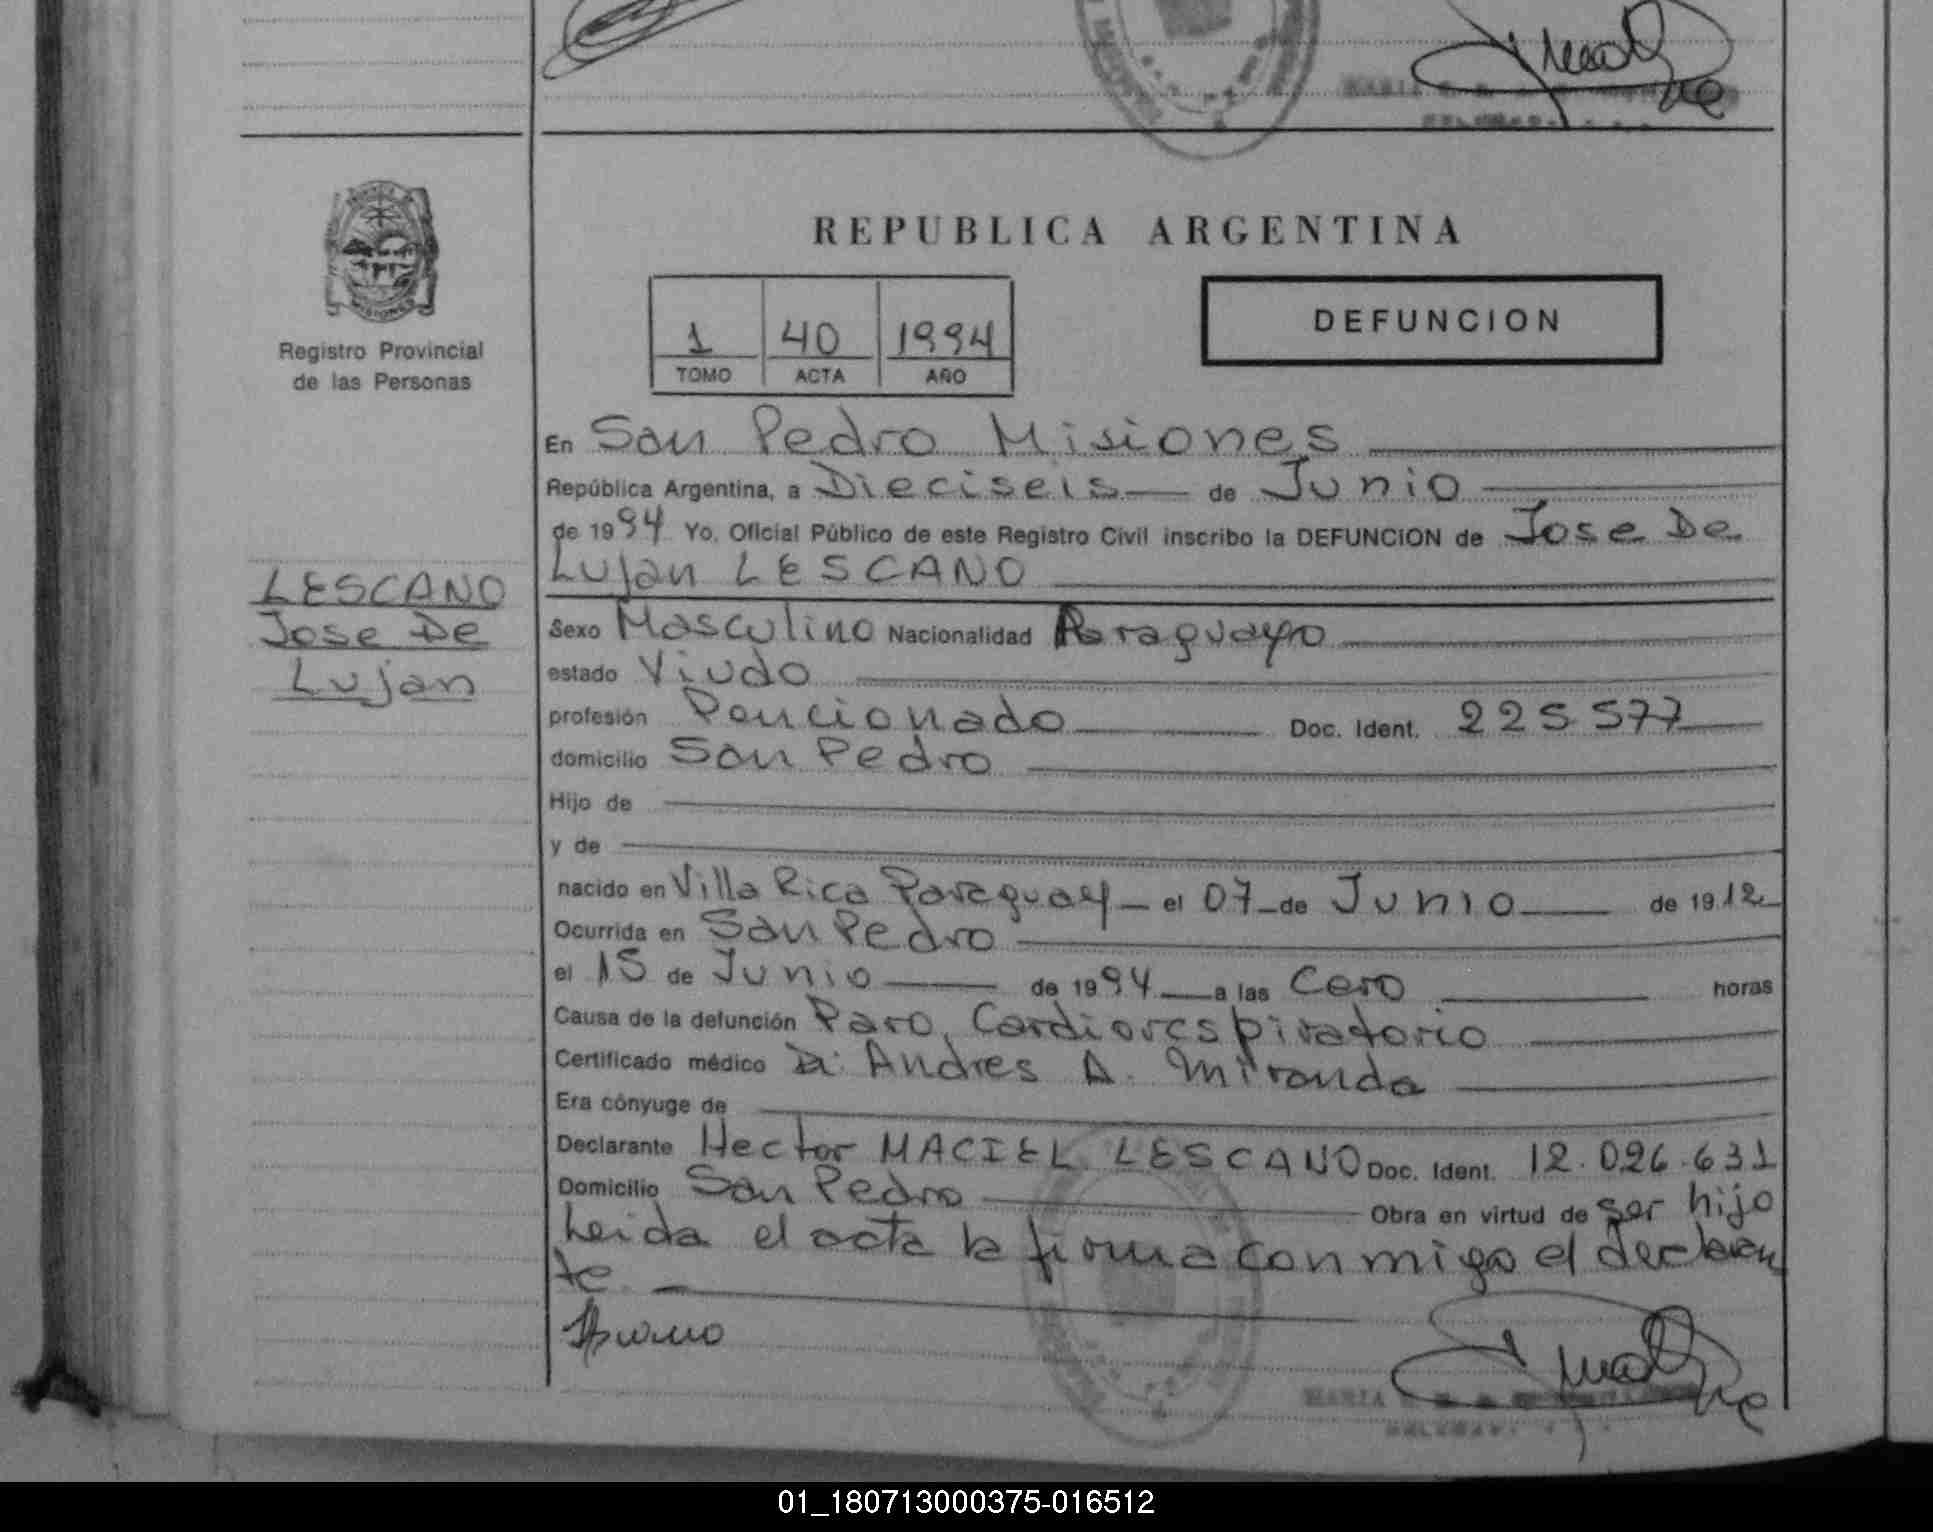 REPUBLICA ARGENTINA
MISIONES
Registro Provincial
de las Personas
1 40 1994
TOMO ACTA AÑO
DEFUNCION
LESCANO
Jose De
Lujan
En San Pedro Misiones
República Argentina, a Dieciseis de Junio
de 1994 Yo, Oficial Público de este Registro Civil inscribo la DEFUNCION de Jose De
Lujan LESCANO
Sexo Masculino Nacionalidad Paraguayo
estado Viudo
profesión Pencionado Doc. Ident. 225577
domicilio San Pedro
Hijo de
y de
nacido en Villa Rica Paraguay el 07 de Junio de 1912
Ocurrida en San Pedro
el 15 de Junio de 1994 a las Cero horas
Causa de la defunción Paro Cardiorespiratorio
Certificado médico Dr. Andres A. Miranda
Era cónyuge de
Declarante Hector MACIEL LESCANO Doc. Ident. 12.026.631
Domicilio San Pedro Obra en virtud de ser hijo
Leida el acta la firma conmigo el declaran
te.
MARIA
01_180713000375-016512